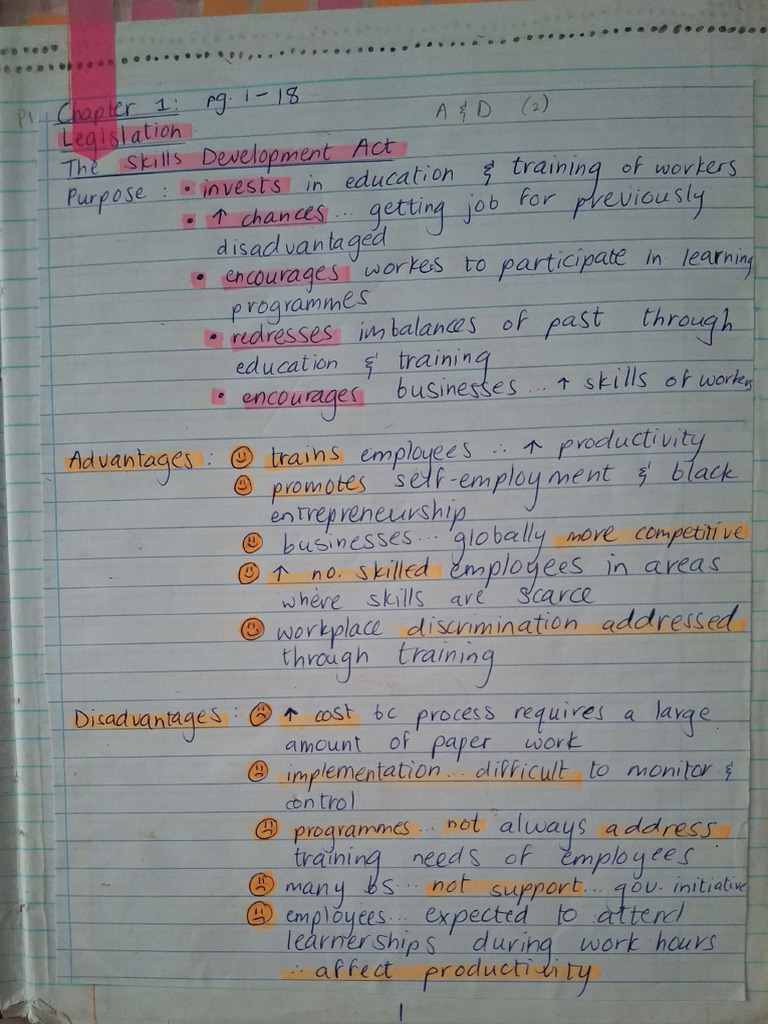 P1 Chapter 1: pg. 1-18 A & D (2)
Legislation
The Skills Development Act
Purpose : • invests in education & training of workers
• ↑ chances... getting job for previously
disadvantaged
• encourages workes to participate in learning
programmes
• redresses imbalances of past through
education & training
• encourages businesses ... ↑ skills of workers
Advantages : trains employees ∴ ↑ productivity
promotes self-employment & black
entrepreneurship
businesses... globally more competitive
↑ no. skilled employees in areas
where skills are scarce
workplace discrimination addressed
through training
Disadvantages : ↑ cost bc process requires a large
amount of paper work
implementation... difficult to monitor &
control
programmes... not always address
training needs of employees
many bs... not support... gov. initiative
employees... expected to attend
learnerships during work hours
∴ affect productivity
1